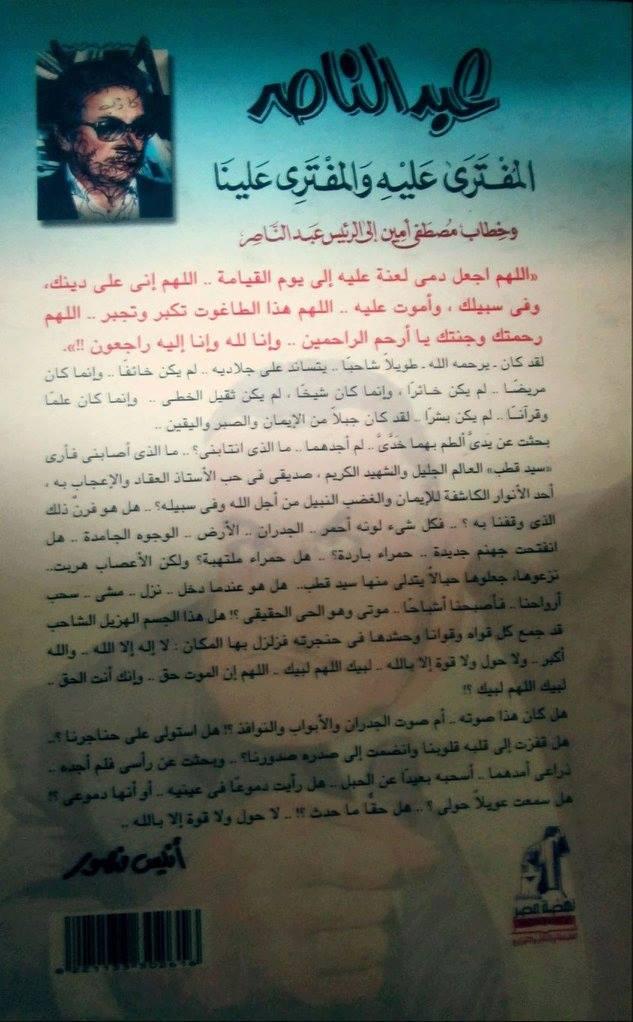 عبد الناصر
المفترى عليه والمفترى علينا
وخطاب مصطفى أمين إلى الرئيس عبد الناصر
«اللهم اجعل دمى لعنة عليه إلى يوم القيامة .. اللهم إنى على دينك،
وفى سبيلك ، وأموت عليه .. اللهم هذا الطاغوت تكبر وتجبر .. اللهم
رحمتك وجنتك يا أرحم الراحمين .. وإنا لله وإنا إليه راجعون !!».
لقد كان ـ يرحمه الله ـ طويلاً شاحبًا .. يتساند على جلاديه .. لم يكن خائفًا .. وإنما كان
مريضًا .. لم يكن خائرًا ، وإنما كان شيخًا ، لم يكن ثقيل الخطى .. وإنما كان علمًا
وقرآنًا .. لم يكن بشرًا .. لقد كان جبلاً من الإيمان والصبر واليقين ..
بحثت عن يدىَّ ألطم بهما خدَّىَّ .. لم أجدهما .. ما الذى انتابنى؟ .. ما الذى أصابنى فأرى
«سيد قطب» العالم الجليل والشهيد الكريم ، صديقى فى حب الأستاذ العقاد والإعجاب به ،
أحد الأنوار الكاشفة للإيمان والغضب النبيل من أجل الله وفى سبيله؟ .. هل هو فرن ذلك
الذى وقفنا به ؟ .. فكل شىء لونه أحمر .. الجدران .. الأرض .. الوجوه الجامدة .. هل
انفتحت جهنم جديدة .. حمراء باردة؟ .. هل حمراء ملتهبة؟ ولكن الأعصاب هربت..
نزعوها، جعلوها حبالاً يتدلى منها سيد قطب.. هل هو عندما دخل .. نزل .. مشى .. سحب
أرواحنا .. فأصبحنا أشباحًا .. موتى وهو الحى الحقيقى ؟! هل هذا الجسم الهزيل الشاحب
قد جمع كل قواه وقوانا وحشدها فى حنجرته فزلزل بها المكان : لا إله إلا الله .. والله
أكبر .. ولا حول ولا قوة إلا بالله .. لبيك اللهم لبيك .. اللهم إن الموت حق .. وإنك أنت الحق ..
لبيك اللهم لبيك ؟!
هل كان هذا صوته .. أم صوت الجدران والأبواب والنوافذ ؟! هل استولى على حناجرنا ؟..
هل قفزت إلى قلبه قلوبنا وانضمت إلى صدره صدورنا؟ .. وبحثت عن رأسى فلم أجده ..
ذراعى أمدهما .. أسحبه بعيدًا عن الحبل .. هل رأيت دموعًا فى عينيه .. أو أنها دموعى ؟!
هل سمعت عويلاً حولى ؟ .. هل حقًا ما حدث ؟! .. لا حول ولا قوة إلا بالله ..
أنيس منصور
نهضة مصر